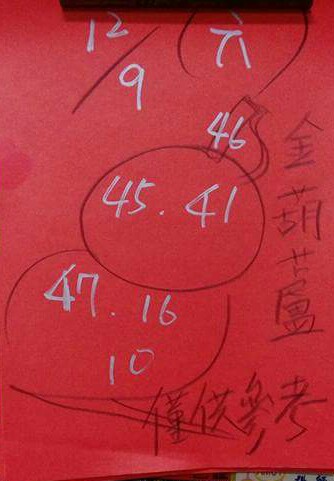 12/9
六
46
45.41
47.16
10
金葫蘆
僅供參考